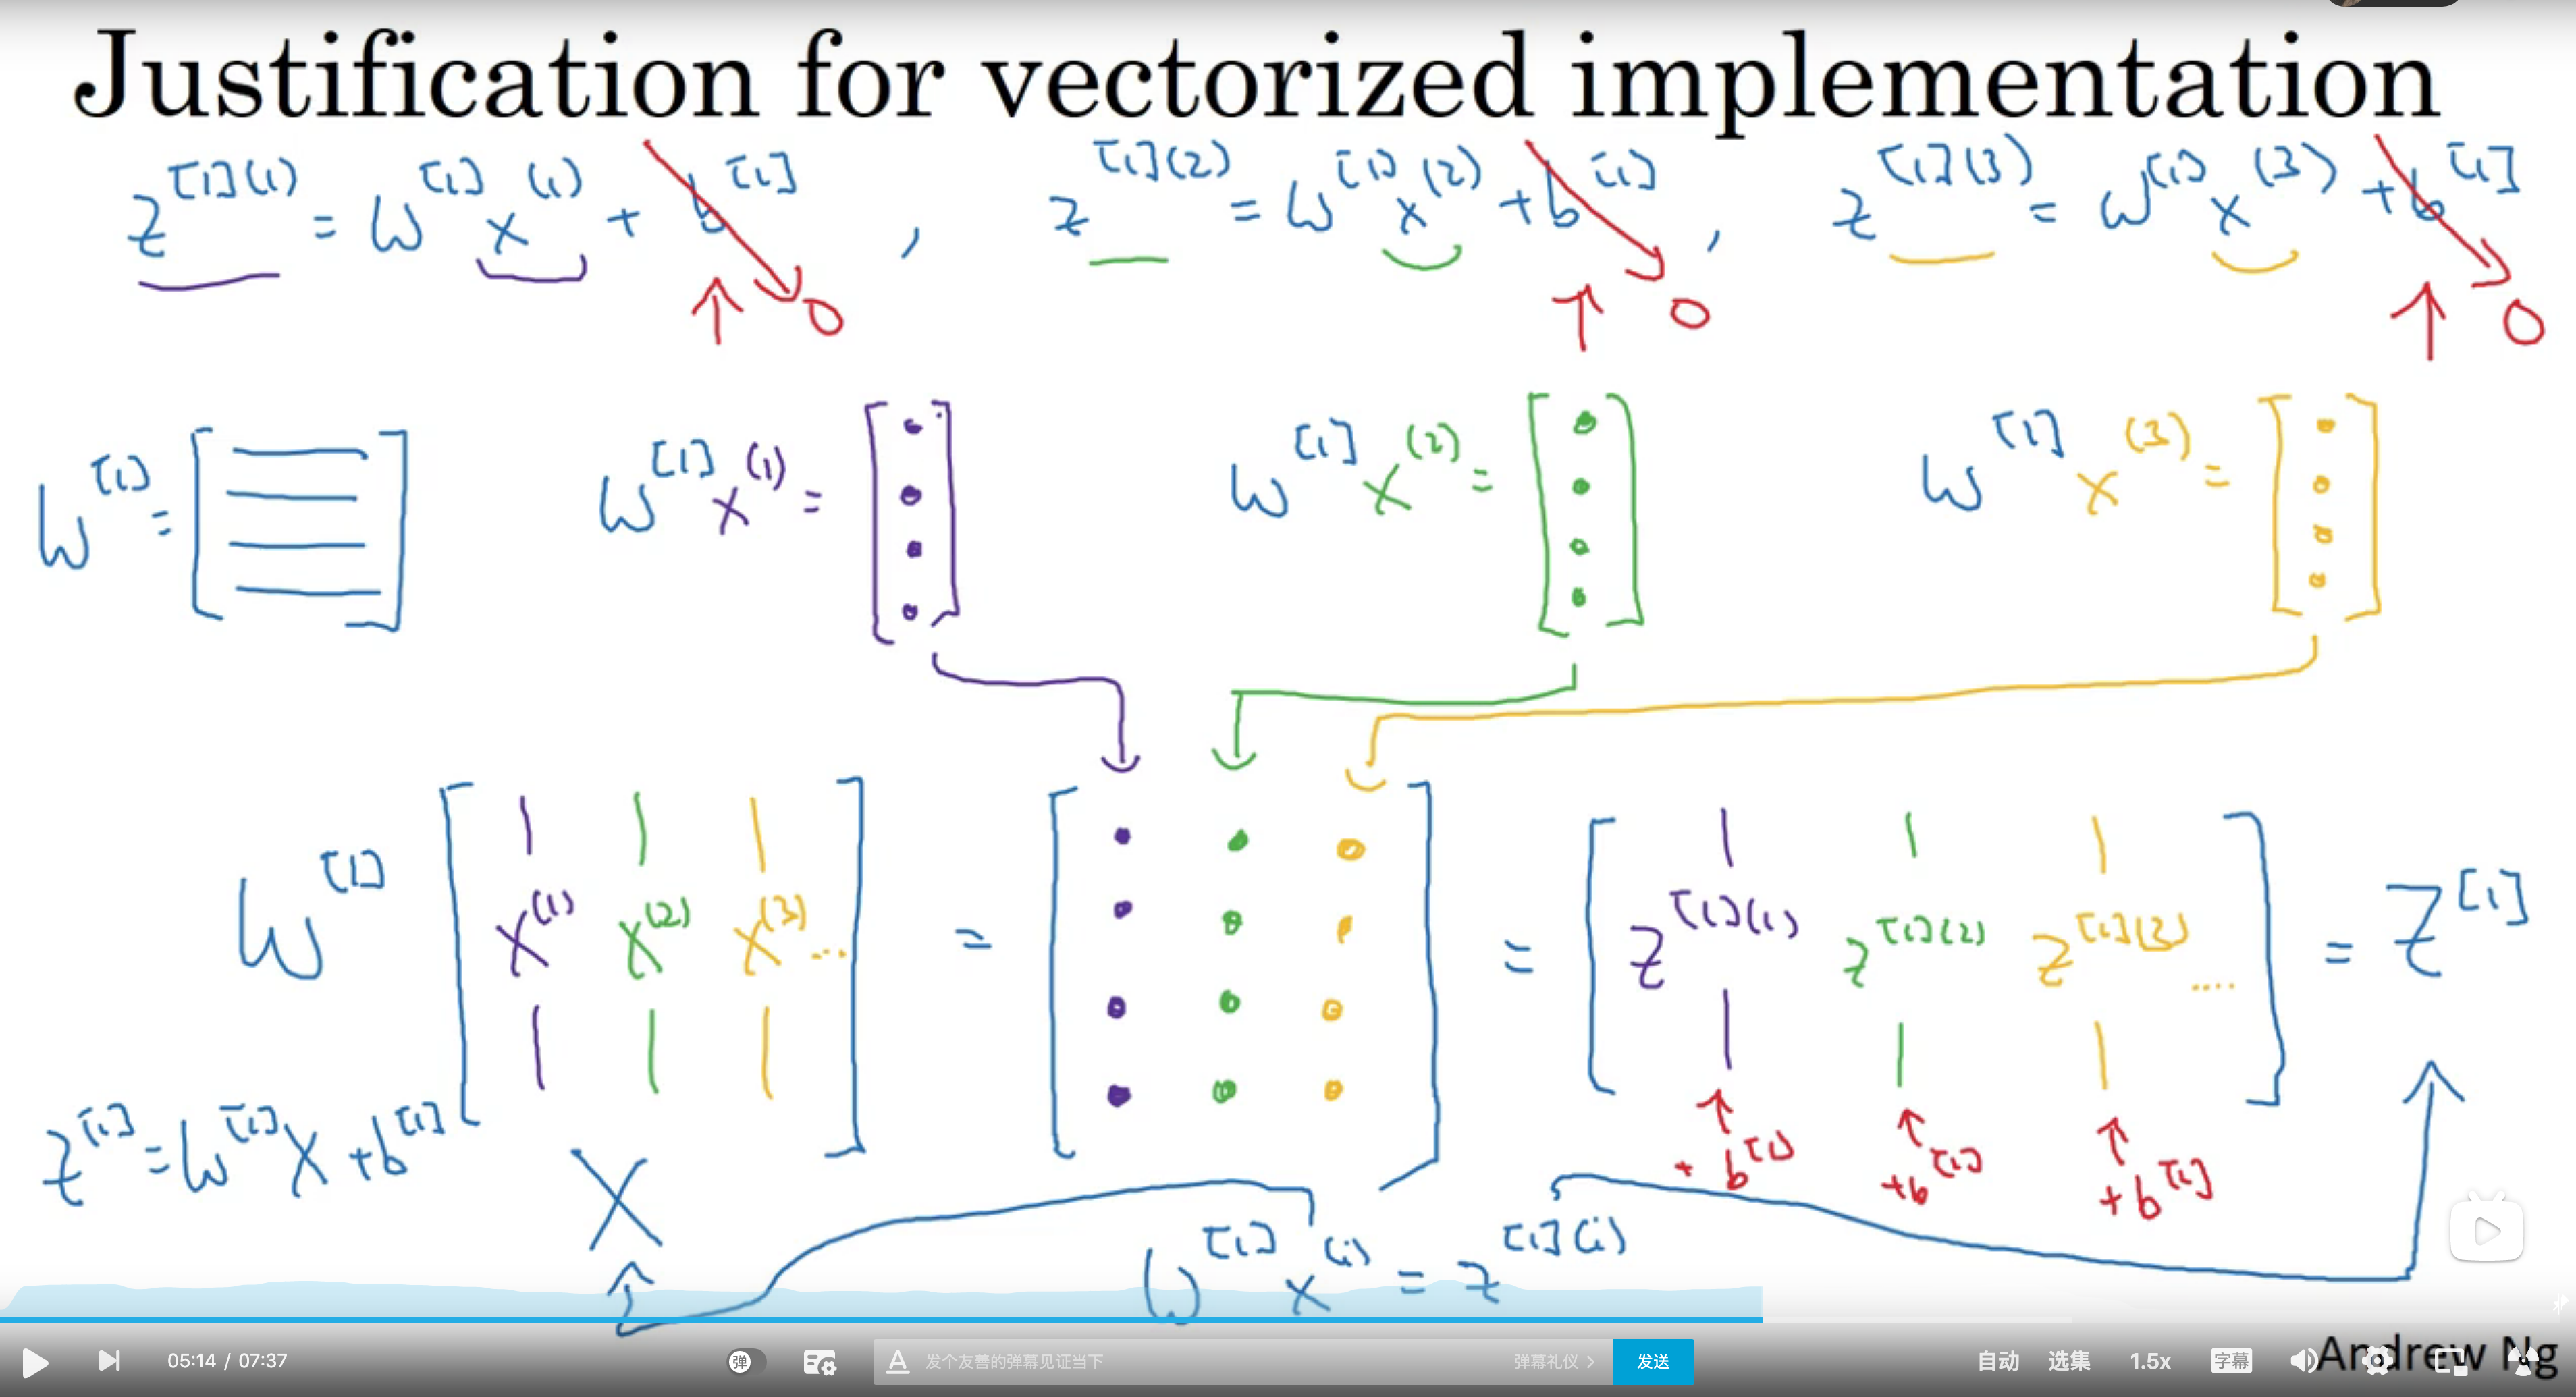 Justification for vectorized implementation
z^[1](1) = W^[1] x^(1) + b^[1] , z^[1](2) = W^[1] x^(2) + b^[1] , z^[1](3) = W^[1] x^(3) + b^[1]
0 0 0
W^[1] = W^[1] x^(1) = W^[1] x^(2) = W^[1] x^(3) =
W^[1] x^(1) x^(2) x^(3) ... = = z^[1](1) z^[1](2) z^[1](3) .... = Z^[1]
Z^[1] = W^[1] X + b^[1]
X
+ b^[1] + b^[1] + b^[1]
W^[1] x^(i) = z^[1](i)
Andrew Ng
05:14 / 07:37 弹 A 发个友善的弹幕见证当下 弹幕礼仪 > 发送 自动 选集 1.5x 字幕